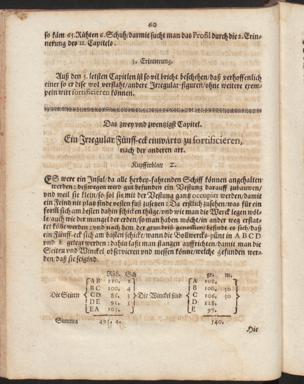 60
so kam 65. Ruhten 6. Schuh/darmit sucht man das Profil durch die 2. Erin-
nerung des 11. Capitels.
3. Erinnerung.
Auß den 3. letzten Capitlen ist so vil bricht beschehen/daß verhoffenlich
einer so er dise wol verstaht/andere Irregular-figuren/ohne weitere exem-
plen wirt fortificieren können.
Das zwey und zwentzigst Capitel.
Ein Irregular Fünff-eck einwärts zu fortificieren,
nach der anderen art.
Kupfferblatt Z.
ES were ein Insul/da alle herbey-fahrenden Schiff können angehalten
werden: deßwegen wird gut befunden ein Vestung darauff zubauwen/
und weil sie klein/so sol sie mit der Vestung gantz occupiert werden/damit
ein Feind nit platz finde vesten fuß zefassen: Da erstlich zusehen/was für ein
form sich am besten dahin schicken thüge; und wie man die Werck legen wöl-
le: auch wie der mangel der erden/so man haben möchte/in ander weg erstat-
tet solte werden: und nach dem der grund befunden es sich/daß
ein Fünff-eck sich am baßten schicke/wann die Bollwercks-pünt in A B C D
und E gelegt werden: dahin laßt man stangen auffrichten/damit man die
Seiten und Winckel observieren und messen könne/welche gefunden wer-
den/daß sie seigind.
Rüh. Sch. gr. m.
AB 120, 2 A 102,
BC 100, 4 B 108, 30
Die Seiten CD 86, 3 Die Winckel sind C 106,
DE 91, D 128, 30
EA 103, E 97,
Summa 491, 4. 540.
Hie